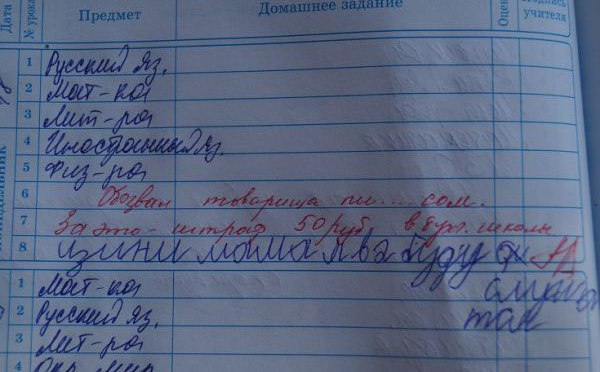 Дата № урока Предмет Домашнее задание Оцен Подпись учителя
1 Русский яз.
2 Мат-ка
3 Лит-ра
4 Иностранный яз.
5 Физ-ра
6 Обозвал товарища пи....сом.
7 За это - штраф 50 руб в бух. школы
8 изини мама я ва буду
1 Мат-ка
2 Русский яз.
3 Лит-ра
4 Окр. мир